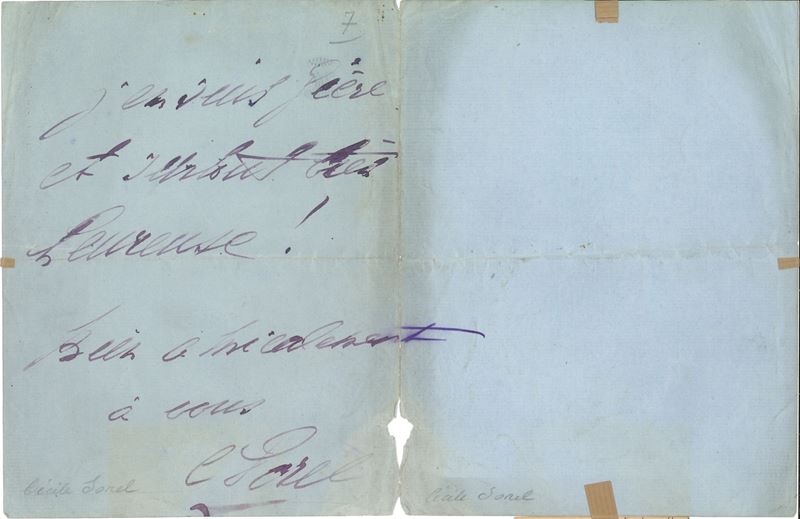 7
j'en suis fière
et surtout bien
heureuse !
bien amicalement
à vous
C Sorel
Cécile Sorel
Cécile Sorel